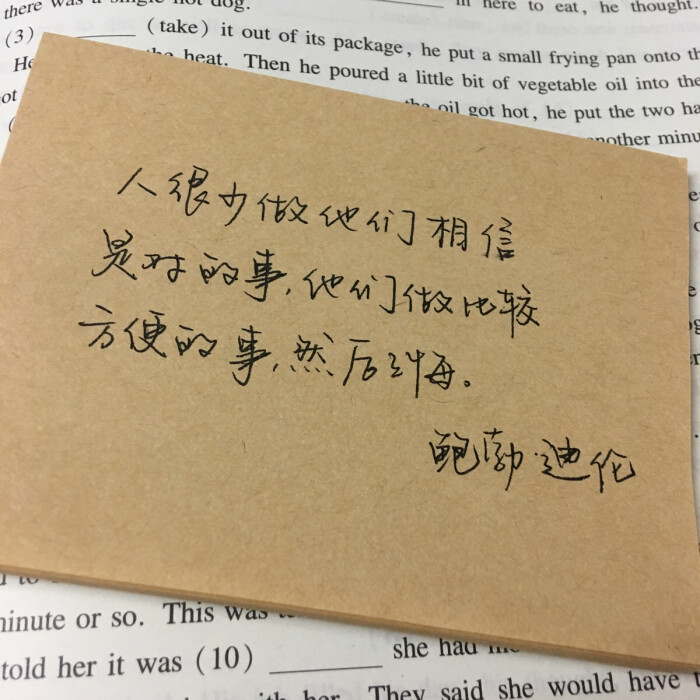 there was a single hot dog.
in here to eat, he thought.
(3) ________ (take) it out of its package, he put a small frying pan onto th
He
the heat. Then he poured a little bit of vegetable oil into the
ot
the oil got hot, he put the two ha
another minu
人很少做他们相信
是对的事,他们做比较
方便的事,然后后悔。
鲍勃·迪伦
minute or so. This was
told her it was (10) ________ she had
with her. They said she would have